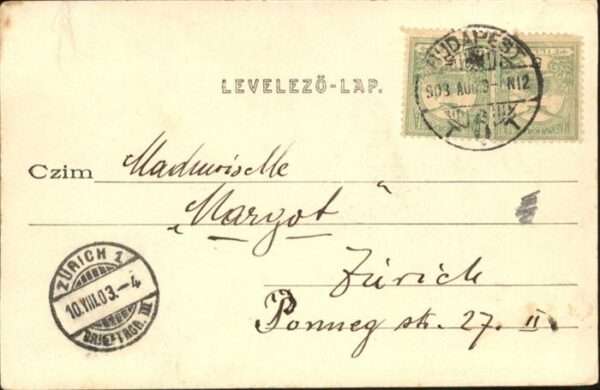 BUDAPEST
903 AUG. 9 N12
LEVELEZŐ-LAP.
Czim Mademoiselle
„Margot"
Zürich
str. 27. II
ZÜRICH 1
10.VIII.03.–4
BRIEFTRÄG. III